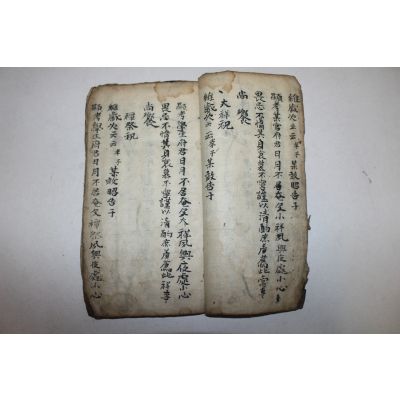 維歲次云云孝子某敢昭告于
顯考某官府君日月不居奄及小祥夙興夜處小心
畏忌不惰其身哀慕不寧謹以清酌庶羞薦此常事
尚饗
大祥祝
維歲次云云孝子某敢昭告于
顯考學生府君日月不居奄及大祥夙興夜處小心
畏忌不惰其身哀慕不寧謹以清酌庶羞薦此祥事
尚饗
禫祭祝
維歲次云云孝子某敢昭告于
顯考學生府君日月不居奄及禫祭夙興夜處小心